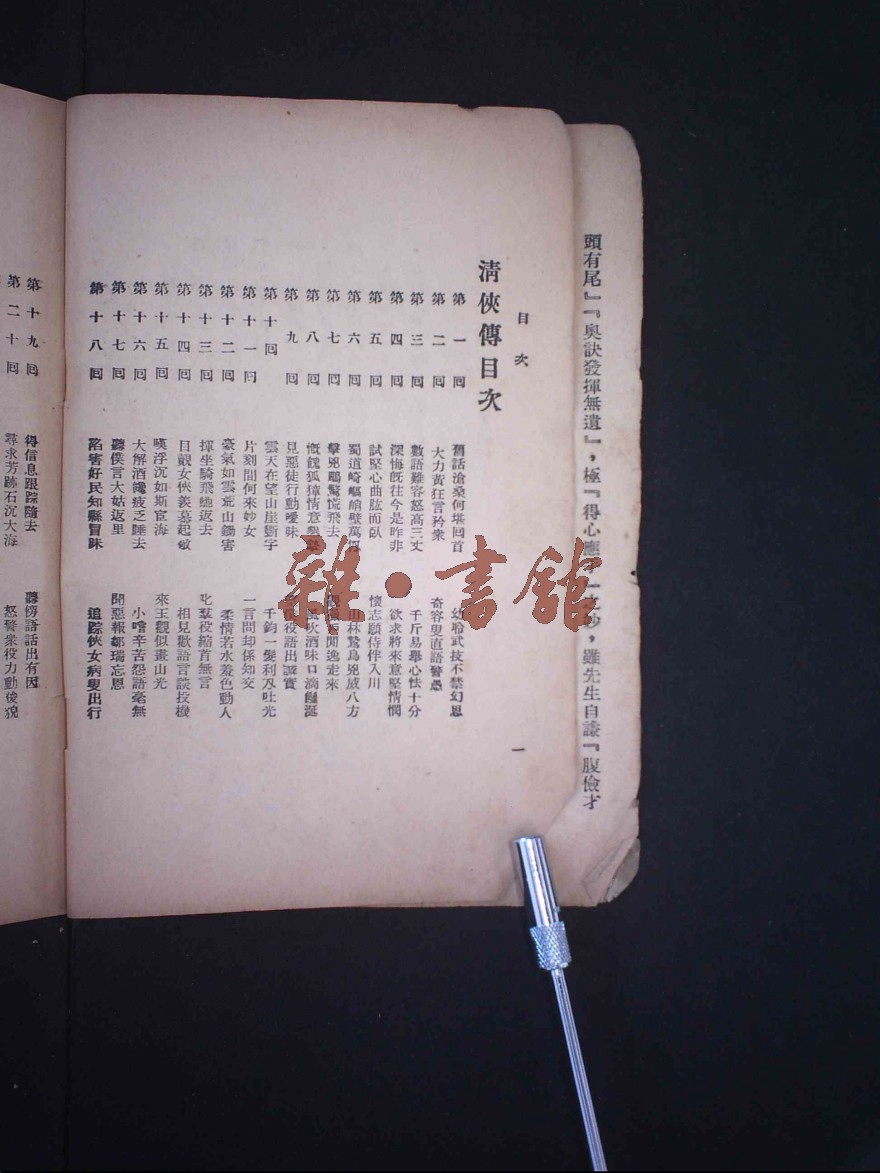 頭有尾』『奧訣發揮無遺』，極『得心應
，雖先生自謙『腹儉才
目次
清俠傳目次
第一回 舊話滄桑何堪回首 幼聆武技不禁幻思
第二回 大力黃狂言矜衆 奇容叟直語警愚
第三回 數語難容怒高三丈 千斤易舉心怯十分
第四回 深悔旣往今是昨非 欲求將來意堅情憫
第五回 試堅心曲肱而臥 懷志願侍伴入川
第六回 蜀道崎嶇峭壁萬 山林鷙鳥兇威八方
第七回 擊兇鵰驚慌飛去 閒逸走來
第八回 慨餽狐獐情意 風吹酒味口滴饞涎
第九回 見惡徒行動曖昧 役語出誠實
第十回 雲天在望山崖斷字 千鈞一髮利刄吐光
第十一回 片刻間何來妙女 一言問却係知交
第十二回 豪氣如雲荒山鋤害 柔情若水羞色動人
第十三回 揮坐騎飛馳返去 叱羣役縮首無言
第十四回 目覩女俠羨慕起敬 相見歡語言談投機
第十五回 嘆浮沉如斯宦海 來玉觀似畫山光
第十六回 大解酒纔疲乏睡去 小嚐辛苦怨語毫無
第十七回 聽僕言大姑返里 聞惡報鄒瑞忘恩
第十八回 陷害好民知縣冒昧 追踪俠女病叟出行
一
第十九回 得信息跟踪隨去 聽傍語話出有因
第二十回 尋求芳跡石沉大海 怒警衆役力動後貌
雜·書館